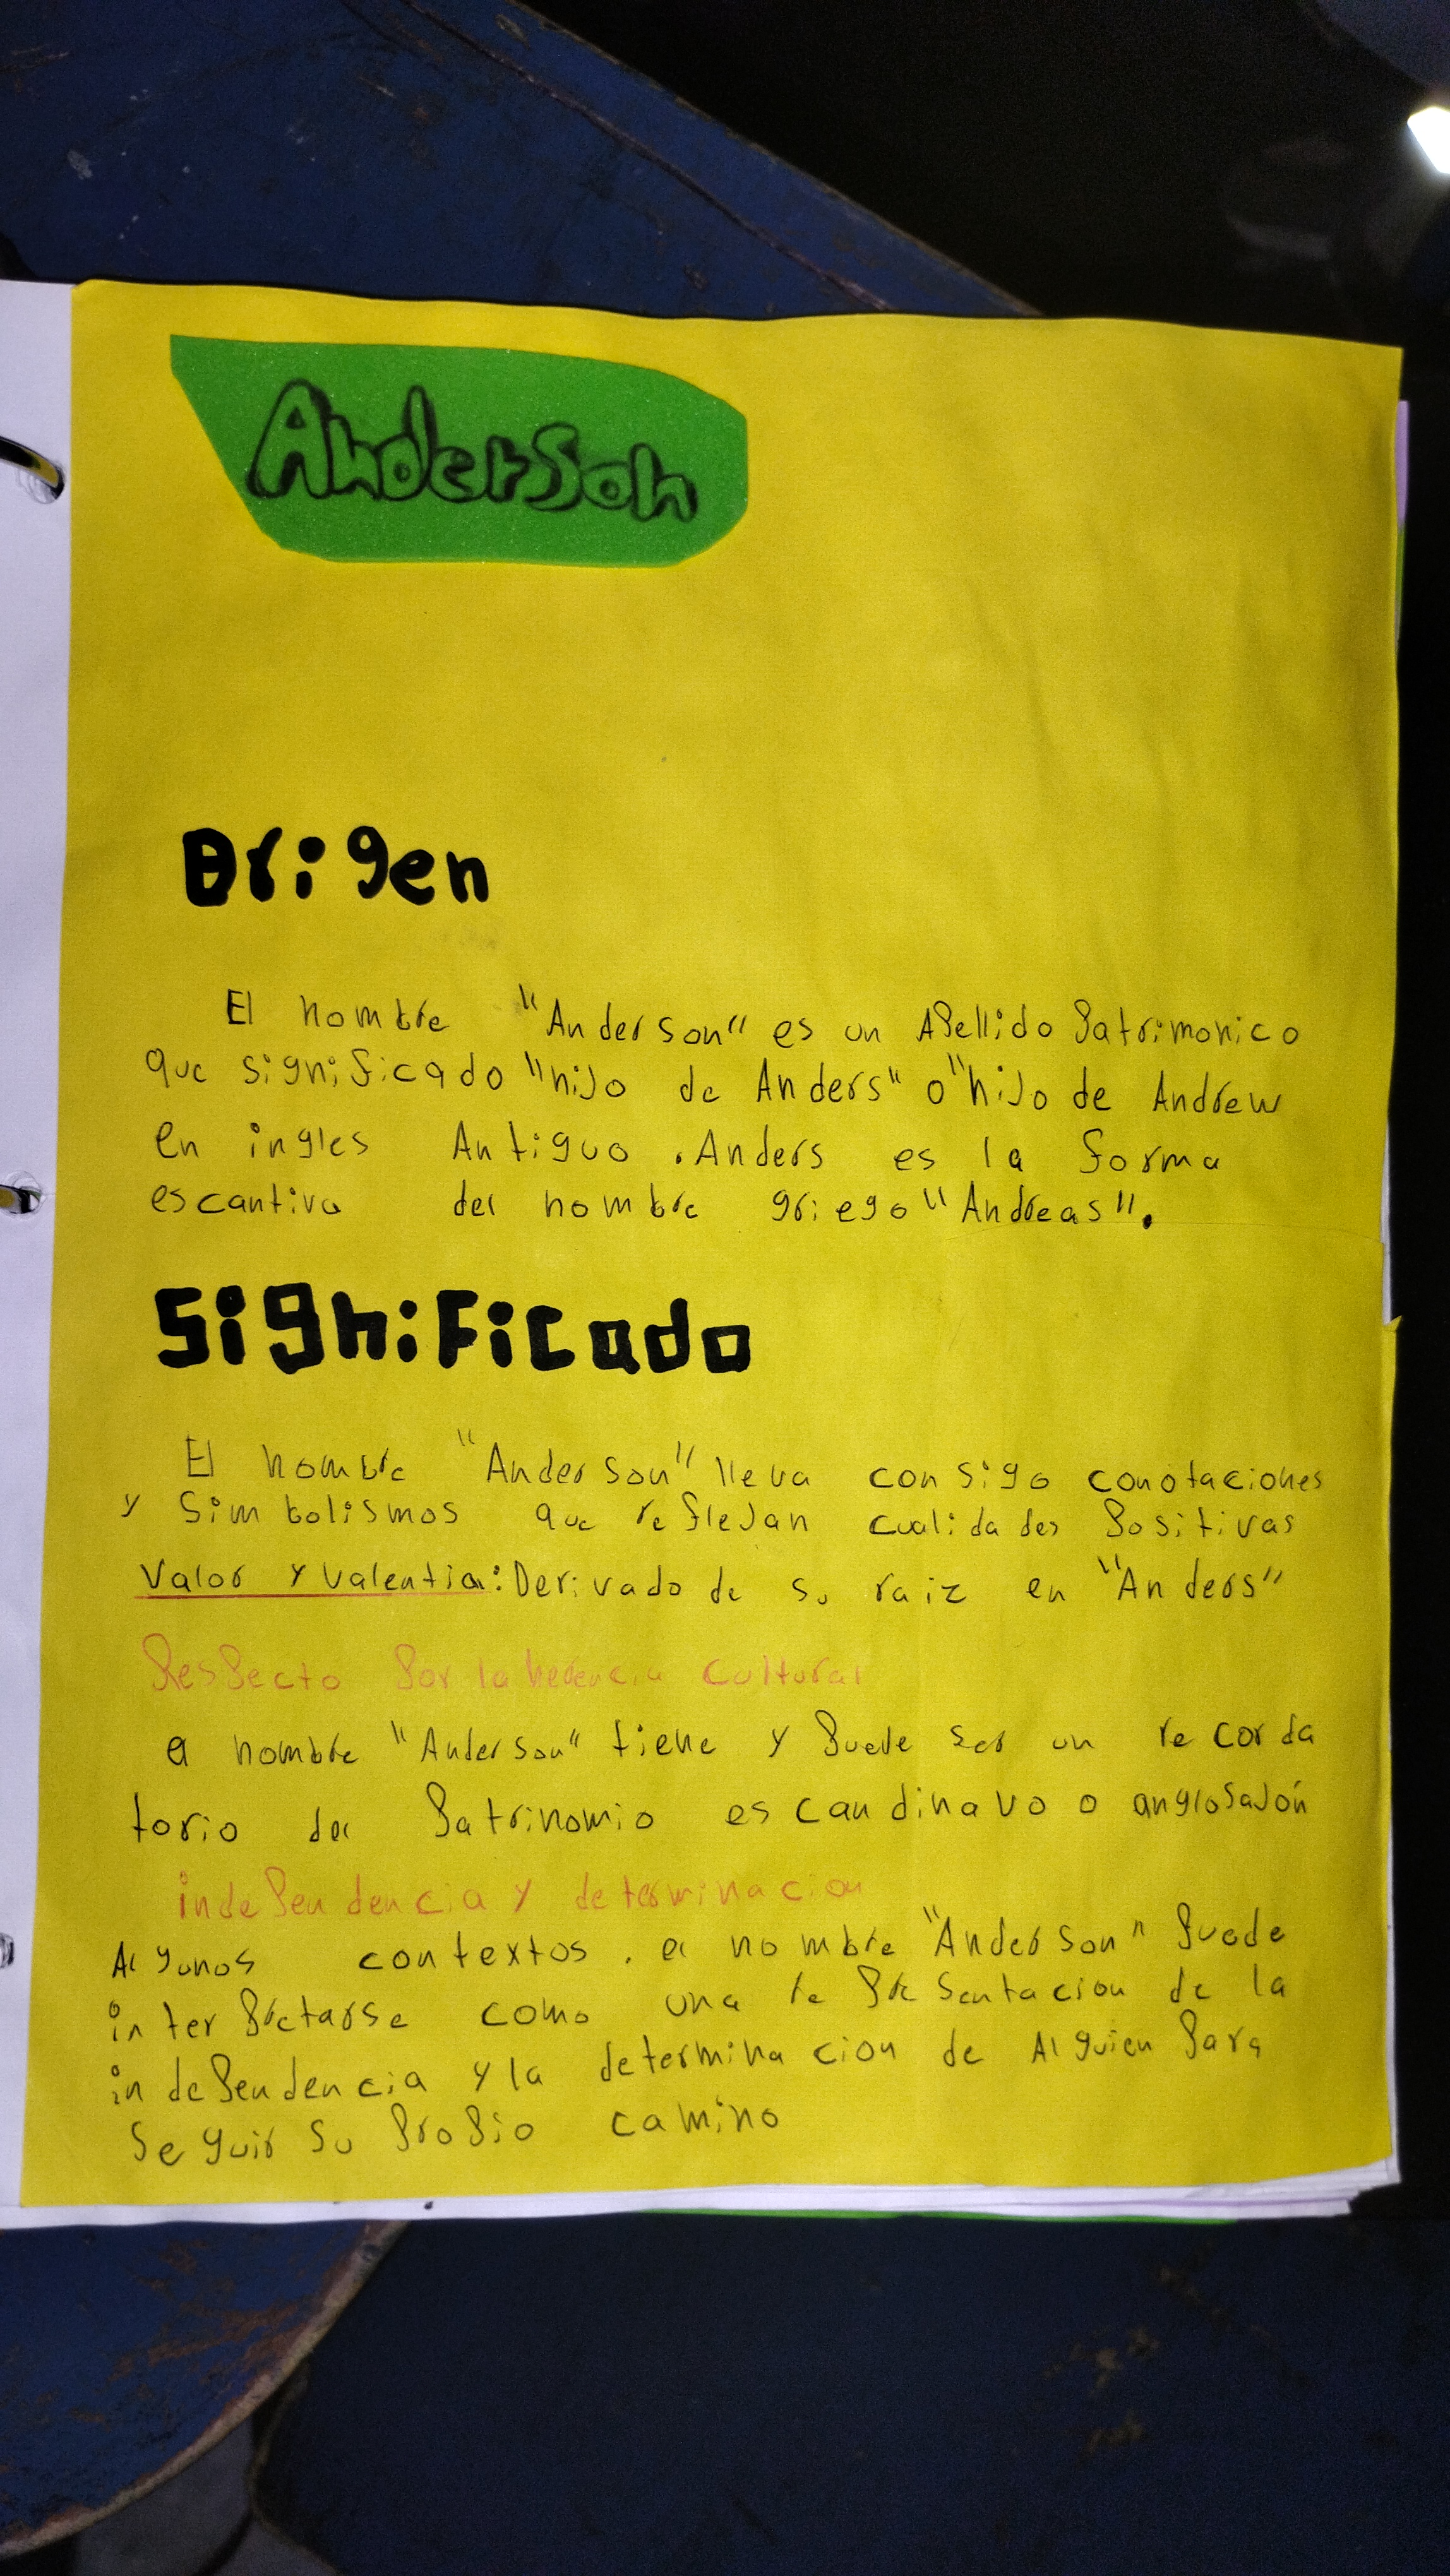 Anderson
Origen
El nombre "Anderson" es un Apellido Patrimonico
que significado "hijo de Anders" o "hijo de Andrew
en ingles Antiguo . Anders es la forma
escantiva del nombre griego "Andreas".
Significado
El nombre "Anderson" lleva consigo conotaciones
y simbolismos que reflejan cualidades Positivas
Valor y valentia: Derivado de su raiz en "Anders"
Respecto Por la herencia cultural
el nombre "Anderson" tiene y Puede ser un recorda
torio del Patrinomio escandinavo o anglosajón
independencia y determinacion
Algunos contextos . el nombre "Anderson" Puede
interpretarse como una representacion de la
independencia y la determinacion de Alguien Para
seguir su Propio camino